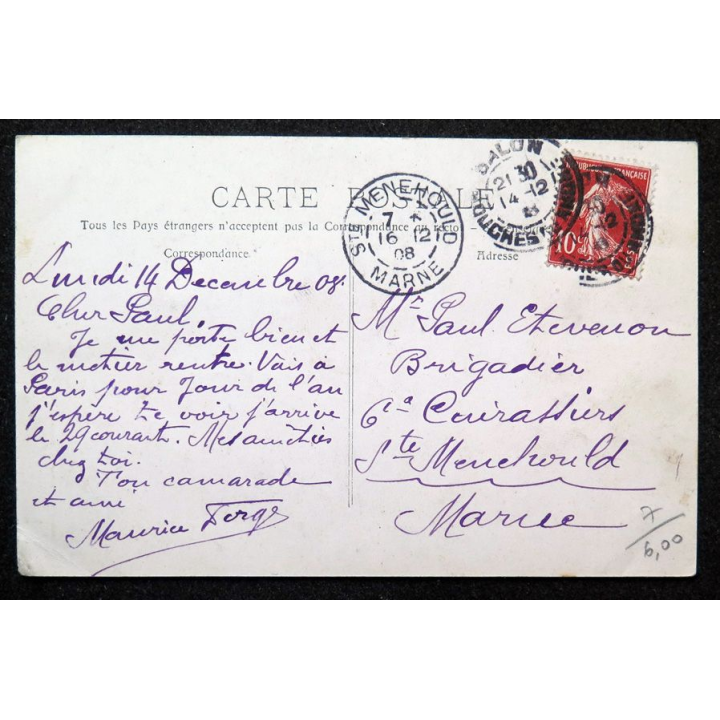 CARTE POSTALE
Tous les Pays étrangers n'acceptent pas la Correspondance au recto
Correspondance
Adresse
Lundi 14 Decembre 08.
Cher Paul,
Je me porte bien et
le metier rentre. Vais à
Paris pour Jour de l'an
j'espère te voir j'arrive
le 29 courant. Mes amitiés
chez toi.
Ton camarade
et ami
Maurice
Mr Paul Etevenon
Brigadier
6e Cuirassiers
Ste Menehould
Marne
STE MENEHOULD
7
16 12
08
MARNE
SALON
21 30
14 12
BOUCHES
RÉPUBLIQUE FRANÇAISE
10c
7
6,00